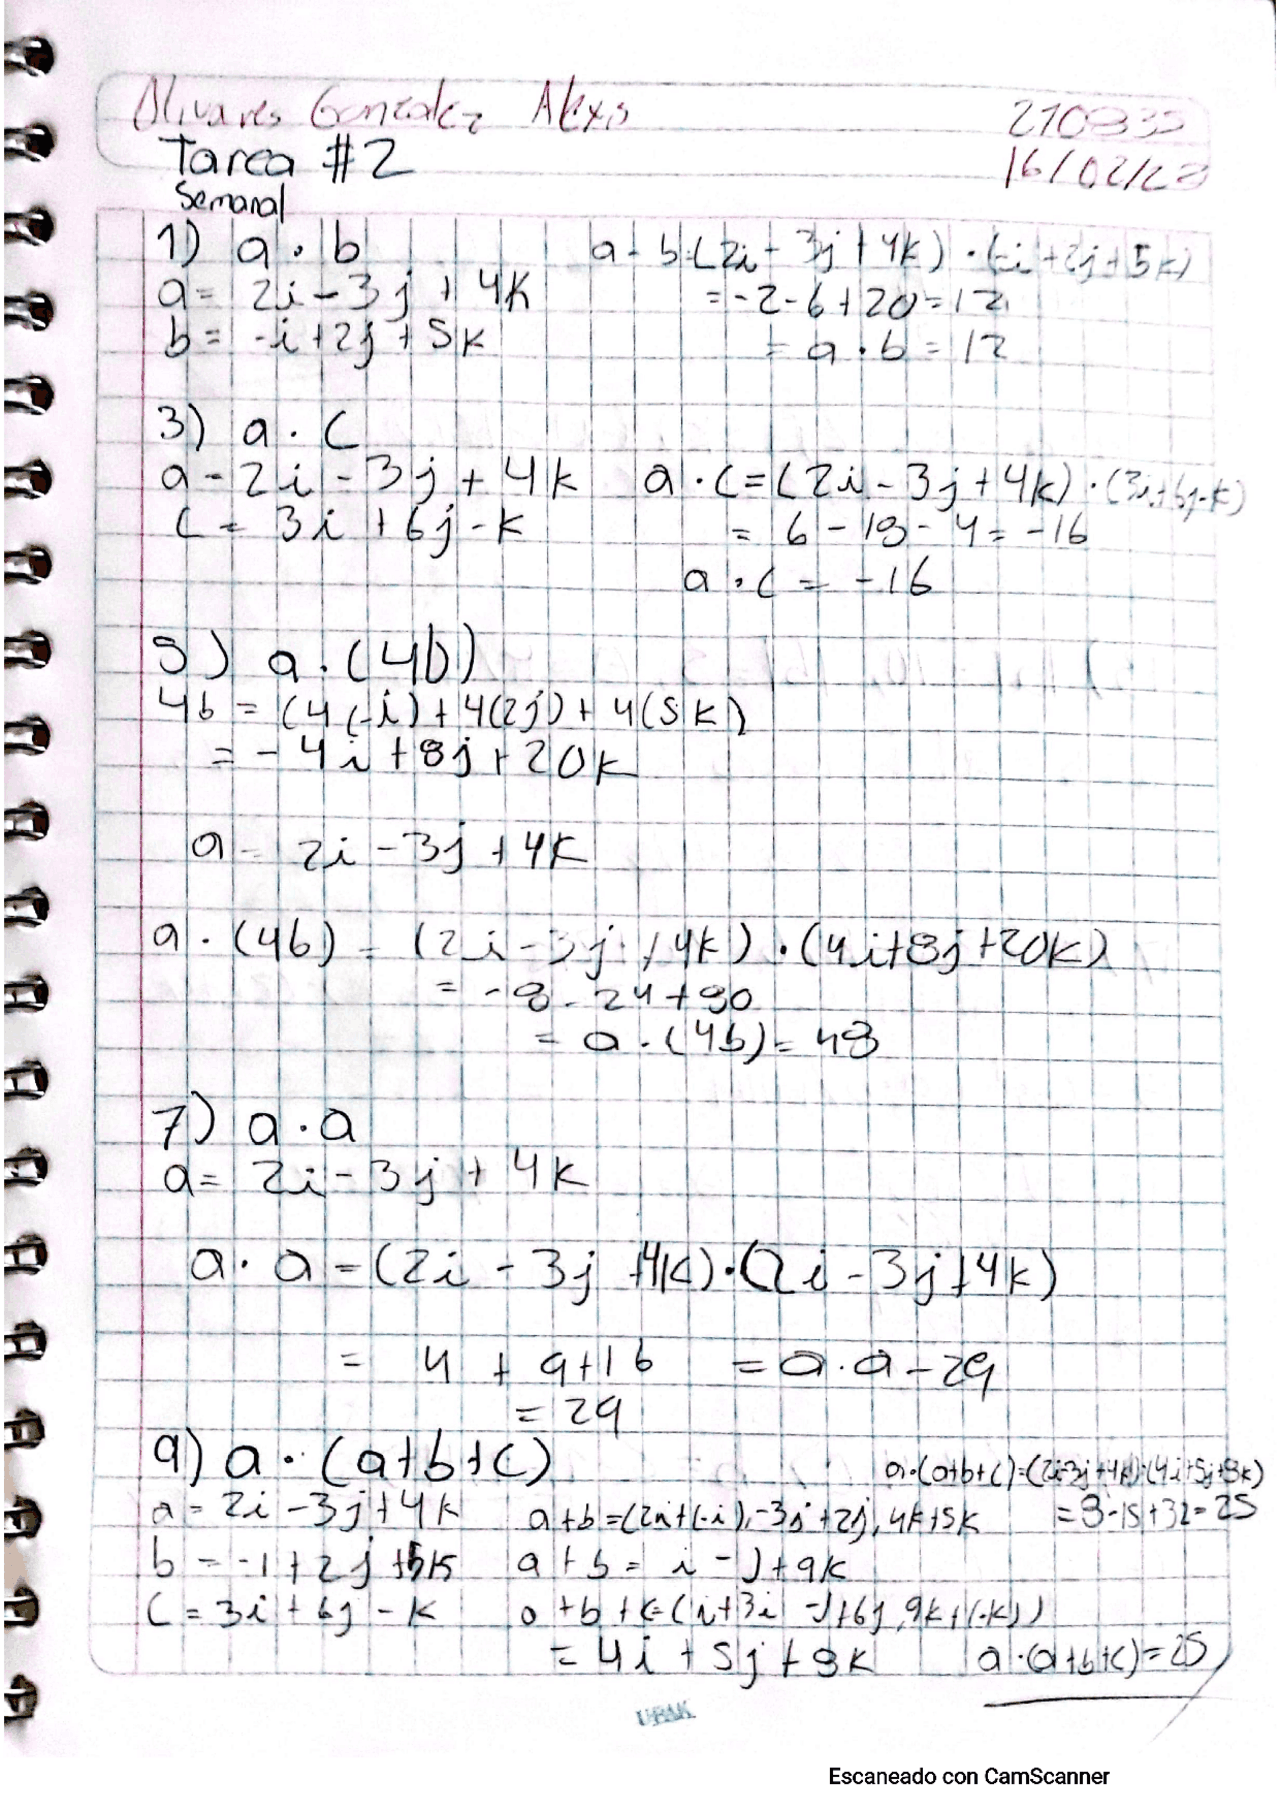 Olivares Gonzalez Alexis
Tarea #2
16/02/23
Semanal
1) a · b
a · b = (2i - 3j + 4k) · (-i + 2j + 5k)
a = 2i - 3j + 4k
= -2 - 6 + 20 = 12
b = -i + 2j + 5k
= a · b = 12
3) a · c
a - 2i - 3j + 4k
a · c = (2i - 3j + 4k) · (3i + 6j - k)
c = 3i + 6j - k
= 6 - 18 - 4 = -16
a · c = -16
5) a · (4b)
4b = (4(-i) + 4(2j) + 4(5k)
= -4i + 8j + 20k
a = 2i - 3j + 4k
a · (4b) = (2i - 3j + 4k) · (4i + 8j + 20k)
= -8 - 24 + 80
= a · (4b) = 48
7) a · a
a = 2i - 3j + 4k
a · a = (2i - 3j + 4k) · (2i - 3j + 4k)
= 4 + 9 + 16 = a · a - 29
= 29
9) a · (a + b + c)
a · (a+b+c) = (2i-3j+4k) · (4i+5j+8k)
a = 2i - 3j + 4k
a + b = (2i + (-i), -3j + 2j, 4k + 5k
= 8 - 15 + 32 = 25
b = -1 + 2j + 5k
a + b = i - j + 9k
c = 3i + 6j - k
a + b + c = (i + 3i - j + 6j, 9k + (-k))
= 4i + 5j + 8k
a · (a+b+c) = 25
Escaneado con CamScanner